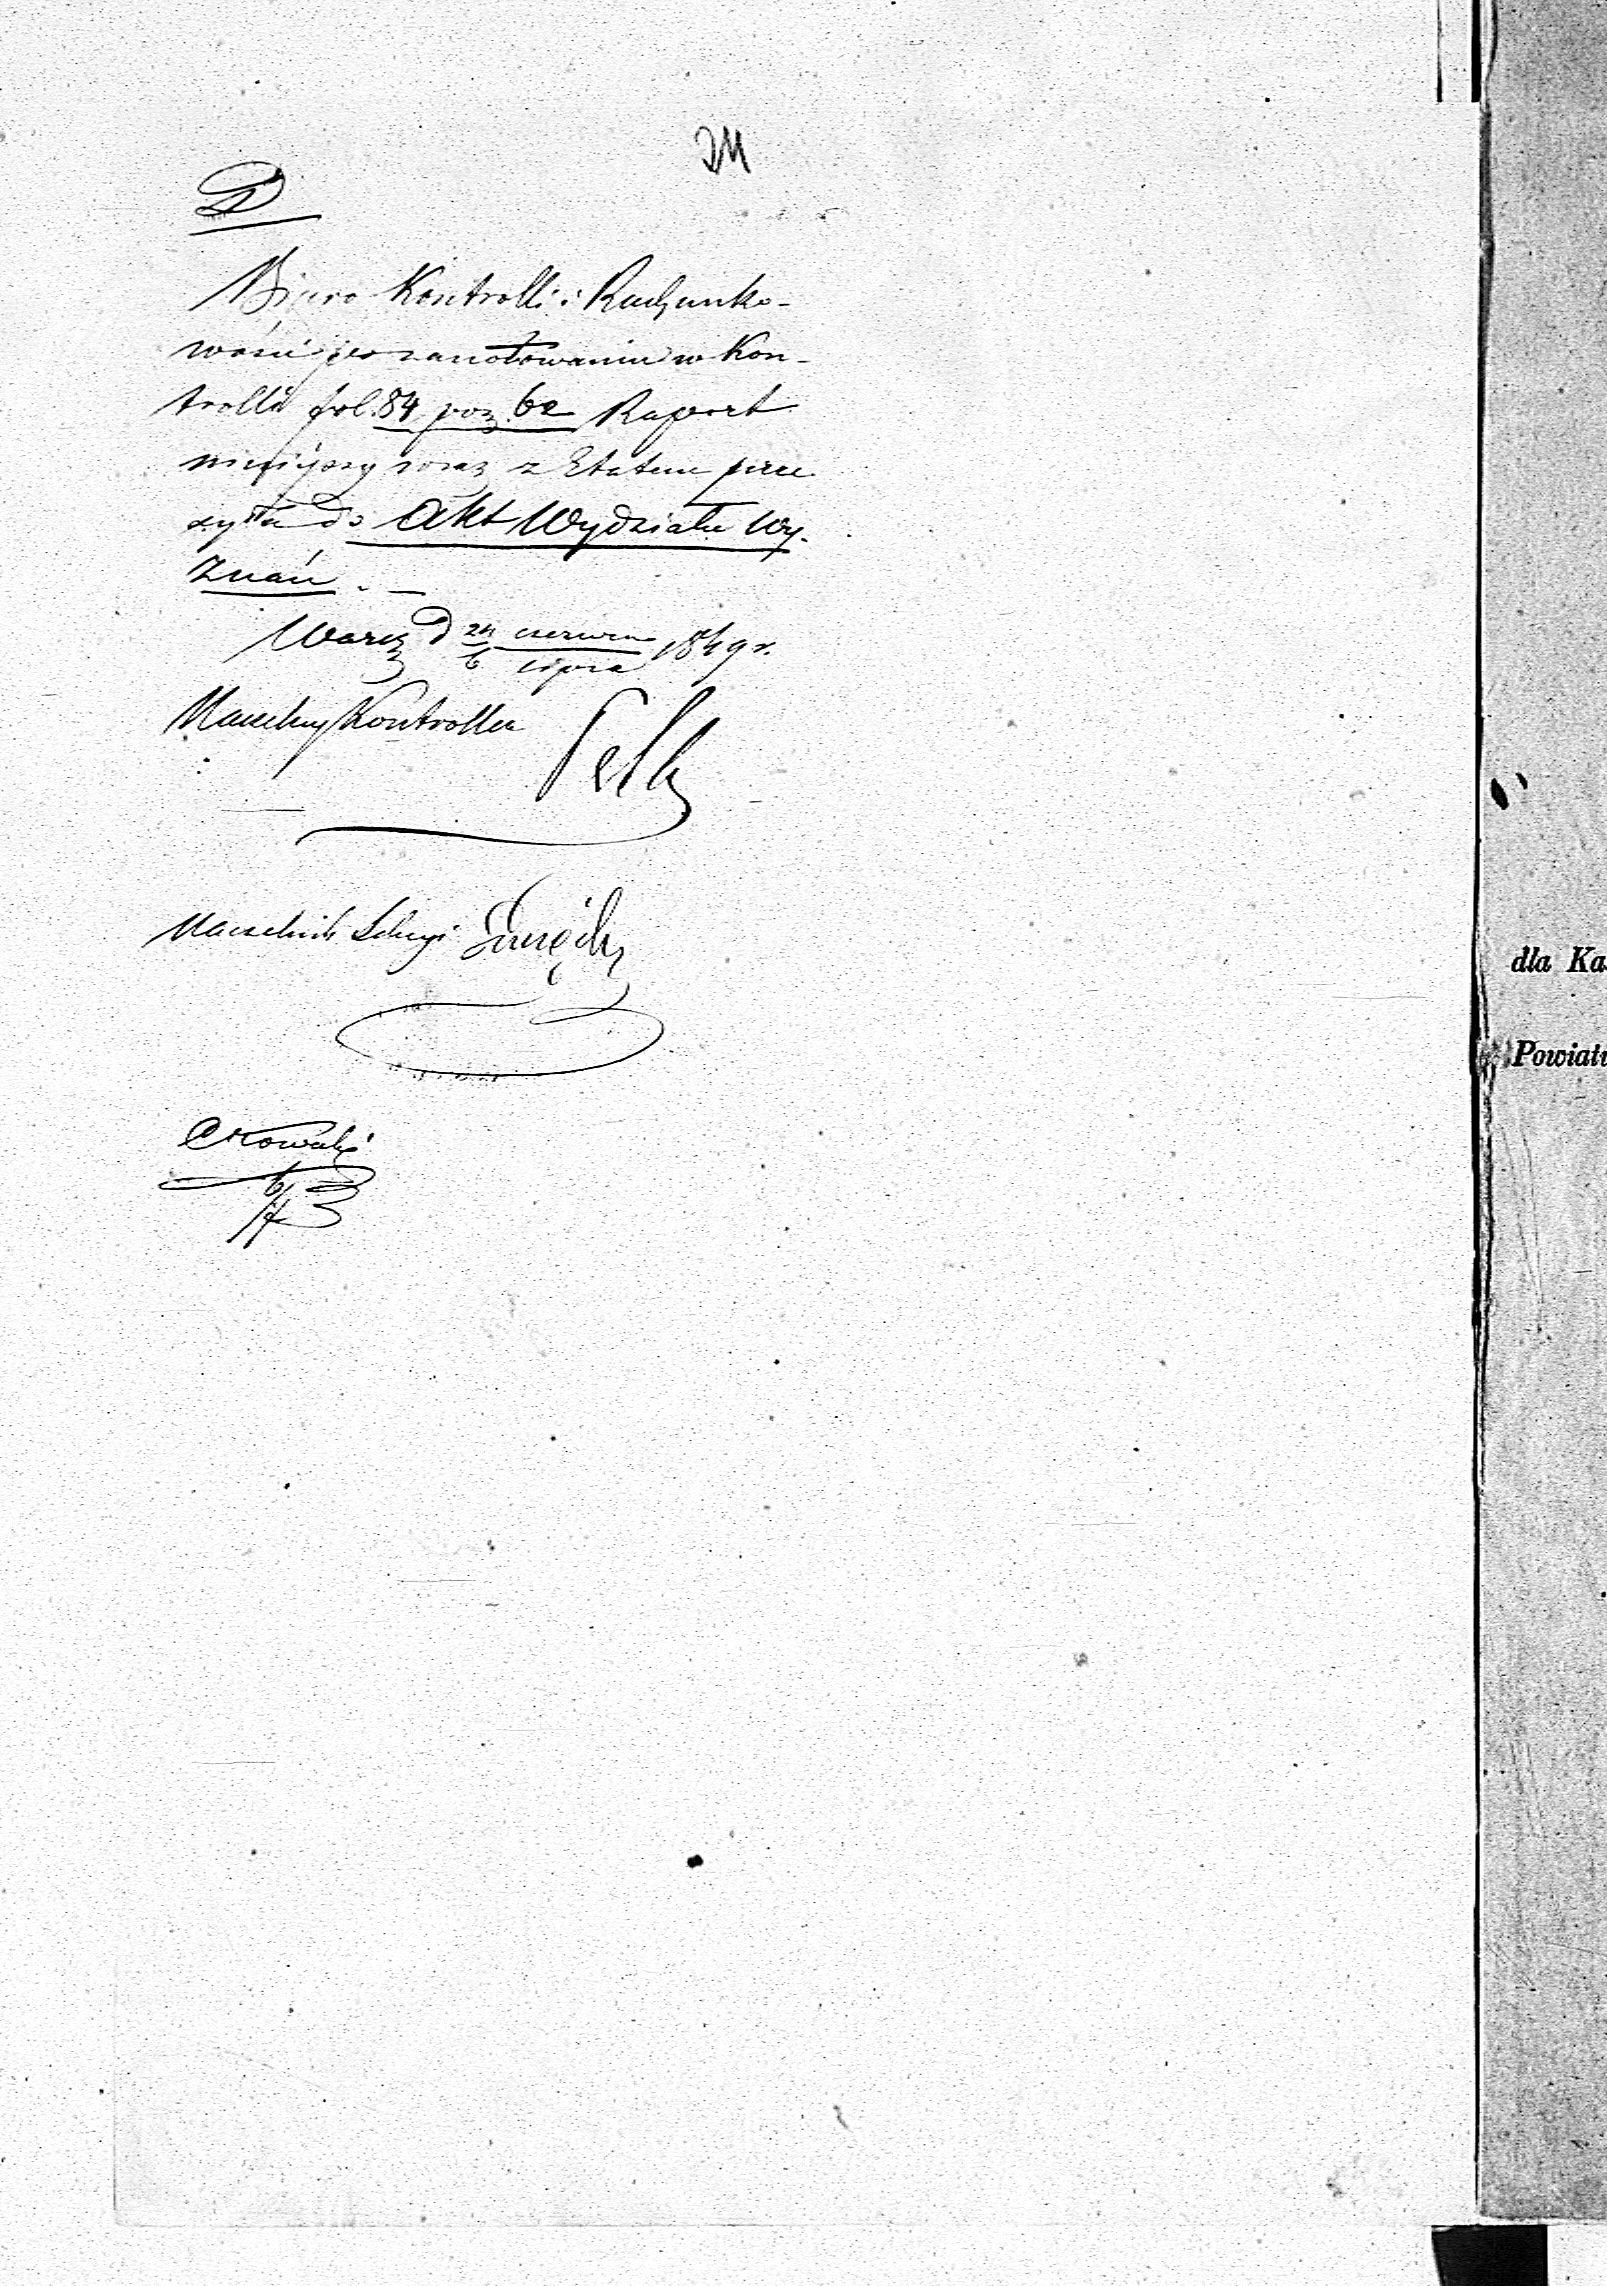 D
Biuro Kontrolli i Rachunko-
wości po zanotowaniu w Kon-
trolli fol. 84 poz. 62 Raport
ninieyszy wraz z Etatem prze
syła do Akt Wydziału Wy-
znań. —
Warsz d 24 czerwca / 6 lipca 1849 r.
Naczelny Kontroller
Naczelnik Sekcyi
dla Ka
Powiatu